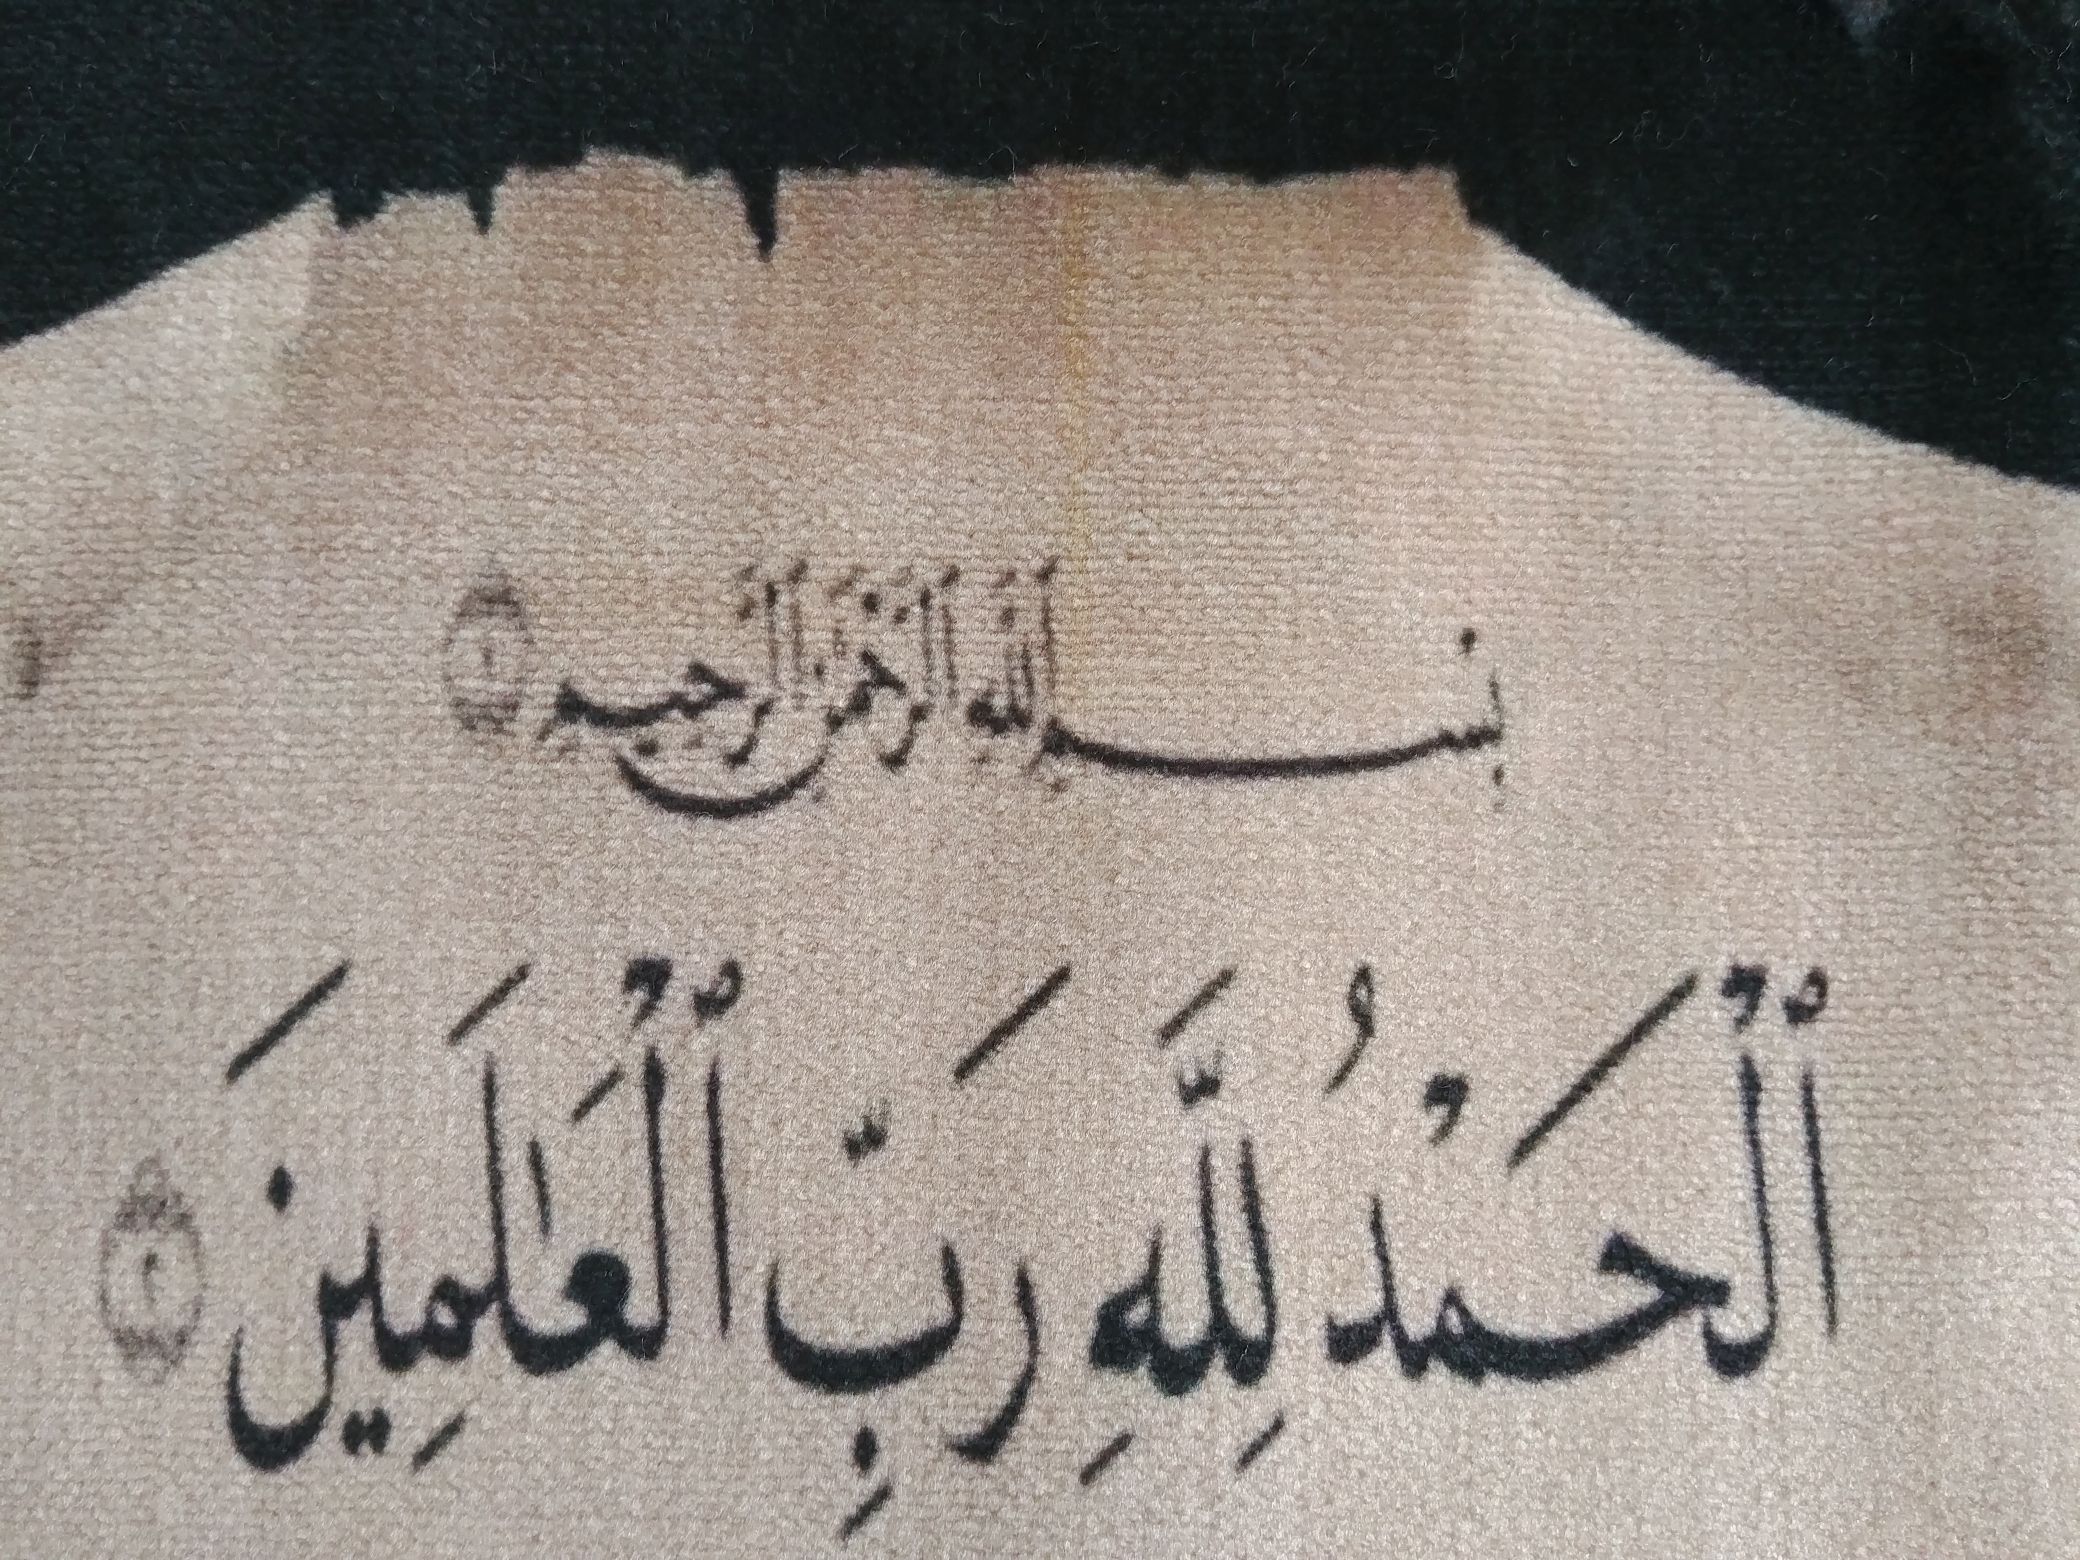 بِسْمِ اَللّٰهِ اَلرَّحْمٰنِ اَلرَّحِيمِ ١
اَلْحَمْدُ لِلَّهِ رَبِّ اَلْعَالَمِينَ ٢